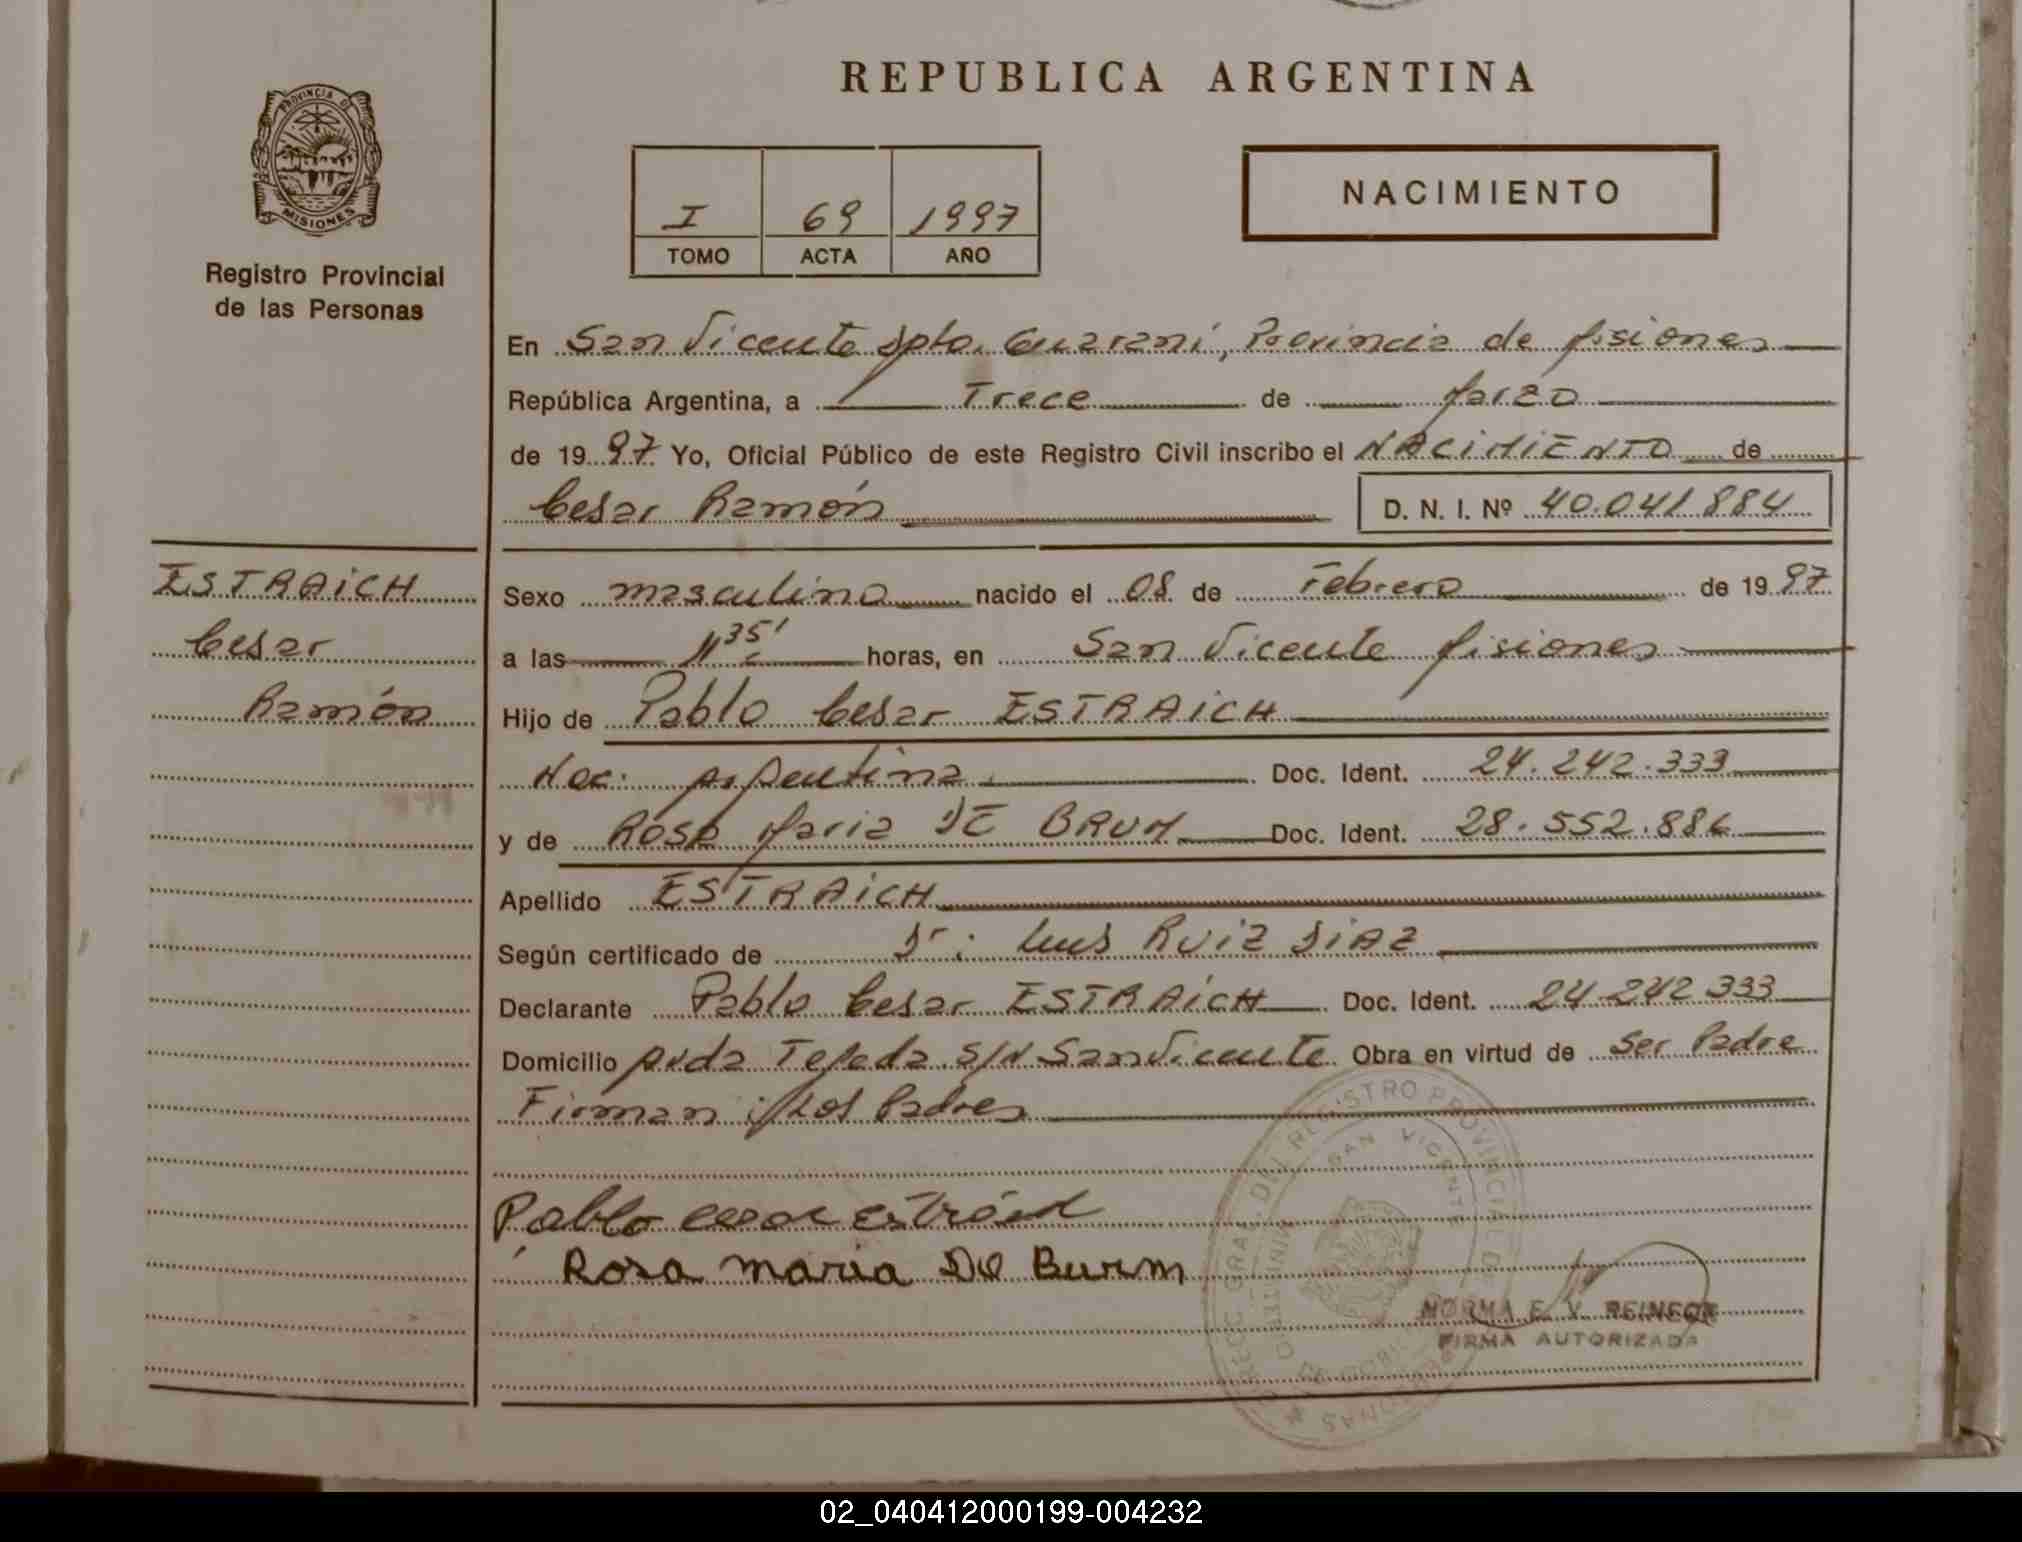 REPUBLICA ARGENTINA
PROVINCIA DE
MISIONES
Registro Provincial
de las Personas
I 69 1997
TOMO ACTA AÑO
NACIMIENTO
En San Vicente Dpto. Guaraní, Provincia de Misiones
República Argentina, a Trece de Marzo
de 1997 Yo, Oficial Público de este Registro Civil inscribo el NACIMIENTO de
Cesar Ramón D. N. I. Nº 40.041.884
ESTRAICH
Cesar
Ramón
Sexo masculino nacido el 08 de Febrero de 1997
a las 11 35' horas, en San Vicente Misiones
Hijo de Pablo Cesar ESTRAICH
Nac: Argentina Doc. Ident. 24.242.333
y de Rosa Maria DE BRUM Doc. Ident. 28.552.886
Apellido ESTRAICH
Según certificado de Dr: Luis RUIZ DIAZ
Declarante Pablo Cesar ESTRAICH Doc. Ident. 24.242.333
Domicilio Avda Tejeda S/N San Vicente Obra en virtud de Ser Padre
Firman: Los Padres
Pablo cesar
Rosa maria De Burm
REGISTRO PROVINCIAL DE
SAN VICENTE
NORMA E. V. REINECK
FIRMA AUTORIZADA
02_040412000199-004232